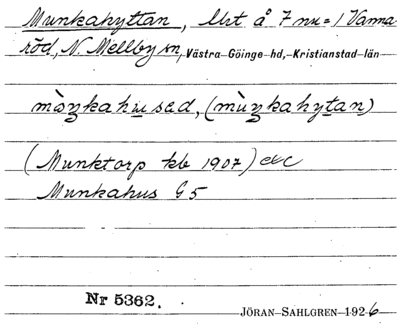 Munkahyttan, lht å 7 nu = 1 Vanna
röd, N. Mellby sn, Västra Göinge hd, Kristianstad län
mùŋkahusəd, (mùŋkahytan)
(Munktorp kb 1907) etc
Munkahus G5
Nr 5362.
JÖRAN SAHLGREN 1926